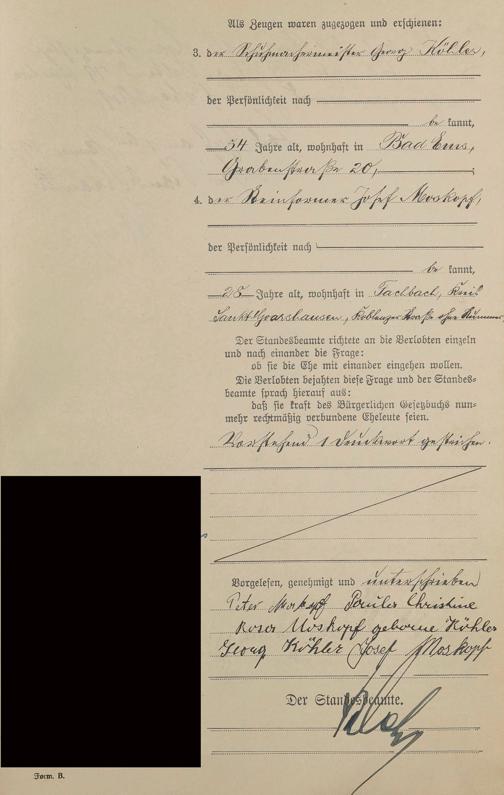 Als Zeugen waren zugezogen und erschienen:
3. der Schuhmachermeister Georg Köhler,
der Persönlichkeit nach
be kannt,
54 Jahre alt, wohnhaft in Bad Ems,
Grabenstraße 20,
4. der Steinformer Josef Moskopf,
der Persönlichkeit nach
be kannt,
28 Jahre alt, wohnhaft in Fachbach, Kreis
Sankt Goarshausen, Koblenzer Straße ohne Nummer.
Der Standesbeamte richtete an die Verlobten einzeln
und nach einander die Frage:
ob sie die Ehe mit einander eingehen wollen.
Die Verlobten bejahten diese Frage und der Standes-
beamte sprach hierauf aus:
daß sie kraft des Bürgerlichen Gesetzbuchs nun-
mehr rechtmäßig verbundene Eheleute seien.
Vorstehend 1 Druckwort gestrichen.
Vorgelesen, genehmigt und unterschrieben
Peter Moskopf Christine
Rosa Moskopf geborne Köhler
Georg Köhler Josef Moskopf
Der Standesbeamte.
Form. B.